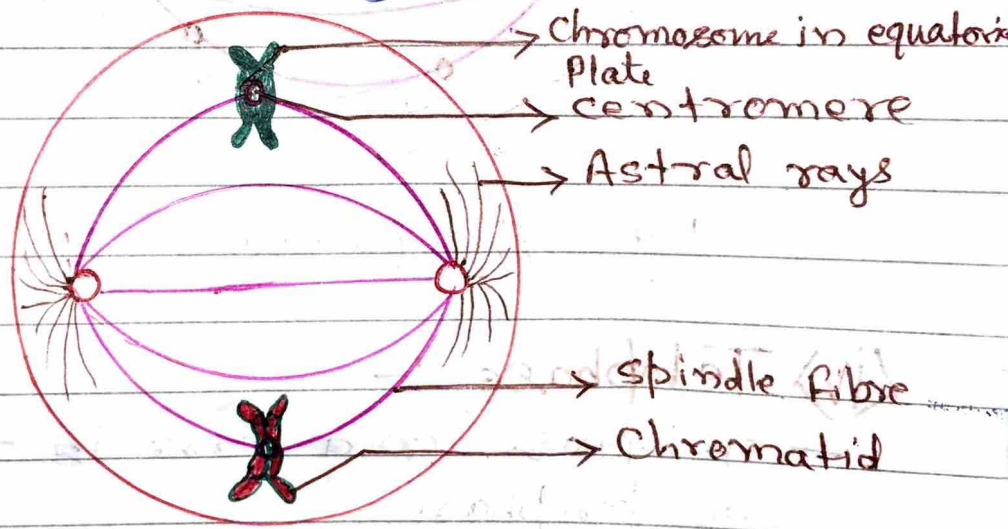 Chromosome in equatoria
Plate
centromere
Astral rays
spindle fibre
Chromatid